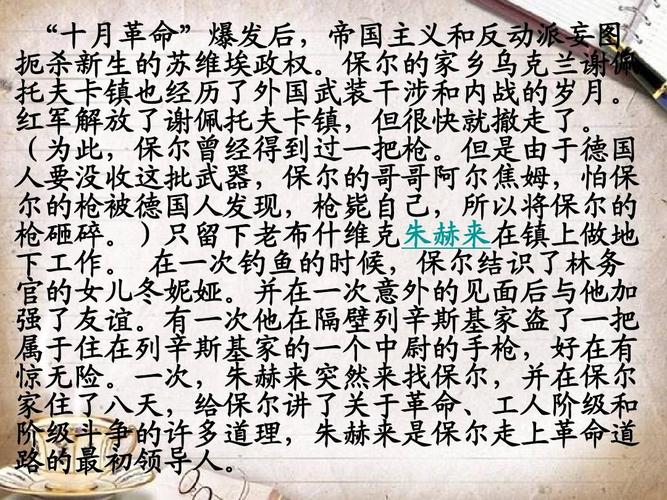 “十月革命”爆发后，帝国主义和反动派妄图
扼杀新生的苏维埃政权。保尔的家乡乌克兰谢佩
托夫卡镇也经历了外国武装干涉和内战的岁月。
红军解放了谢佩托夫卡镇，但很快就撤走了。
（为此，保尔曾经得到过一把枪。但是由于德国
人要没收这批武器，保尔的哥哥阿尔焦姆，怕保
尔的枪被德国人发现，枪毙自己，所以将保尔的
枪砸碎。）只留下老布什维克朱赫来在镇上做地
下工作。 在一次钓鱼的时候，保尔结识了林务
官的女儿冬妮娅。并在一次意外的见面后与他加
强了友谊。有一次他在隔壁列辛斯基家盗了一把
属于住在列辛斯基家的一个中尉的手枪，好在有
惊无险。一次，朱赫来突然来找保尔，并在保尔
家住了八天，给保尔讲了关于革命、工人阶级和
阶级斗争的许多道理，朱赫来是保尔走上革命道
路的最初领导人。